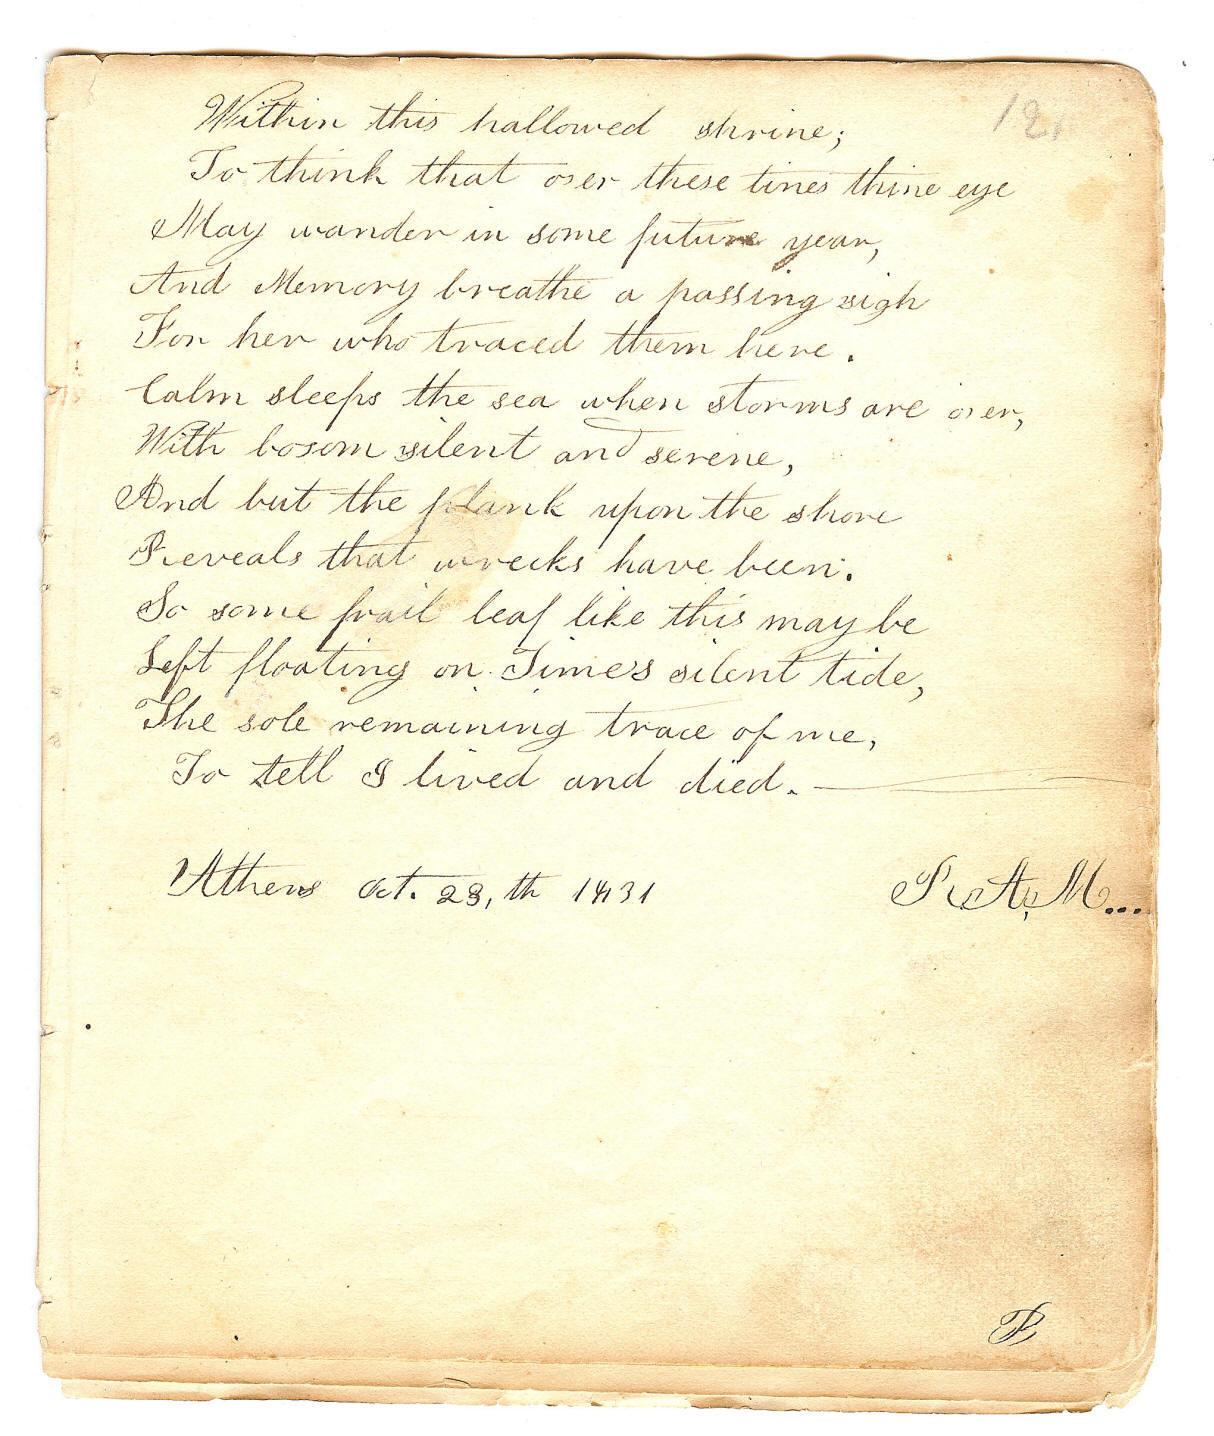 12,
Within this hallowed shrine;
To think that o'er these lines thine eye
May wander in some future year,
And Memory breathe a passing sigh
For her who traced them here.
Calm sleeps the sea when storms are o'er,
With bosom silent and serene,
And but the plank upon the shore
Reveals that wrecks have been.
So some frail leaf like this may be
Left floating on Time's silent tide,
The sole remaining trace of me,
To tell I lived and died.
Athens Oct. 28,th 1831
R. A, M...